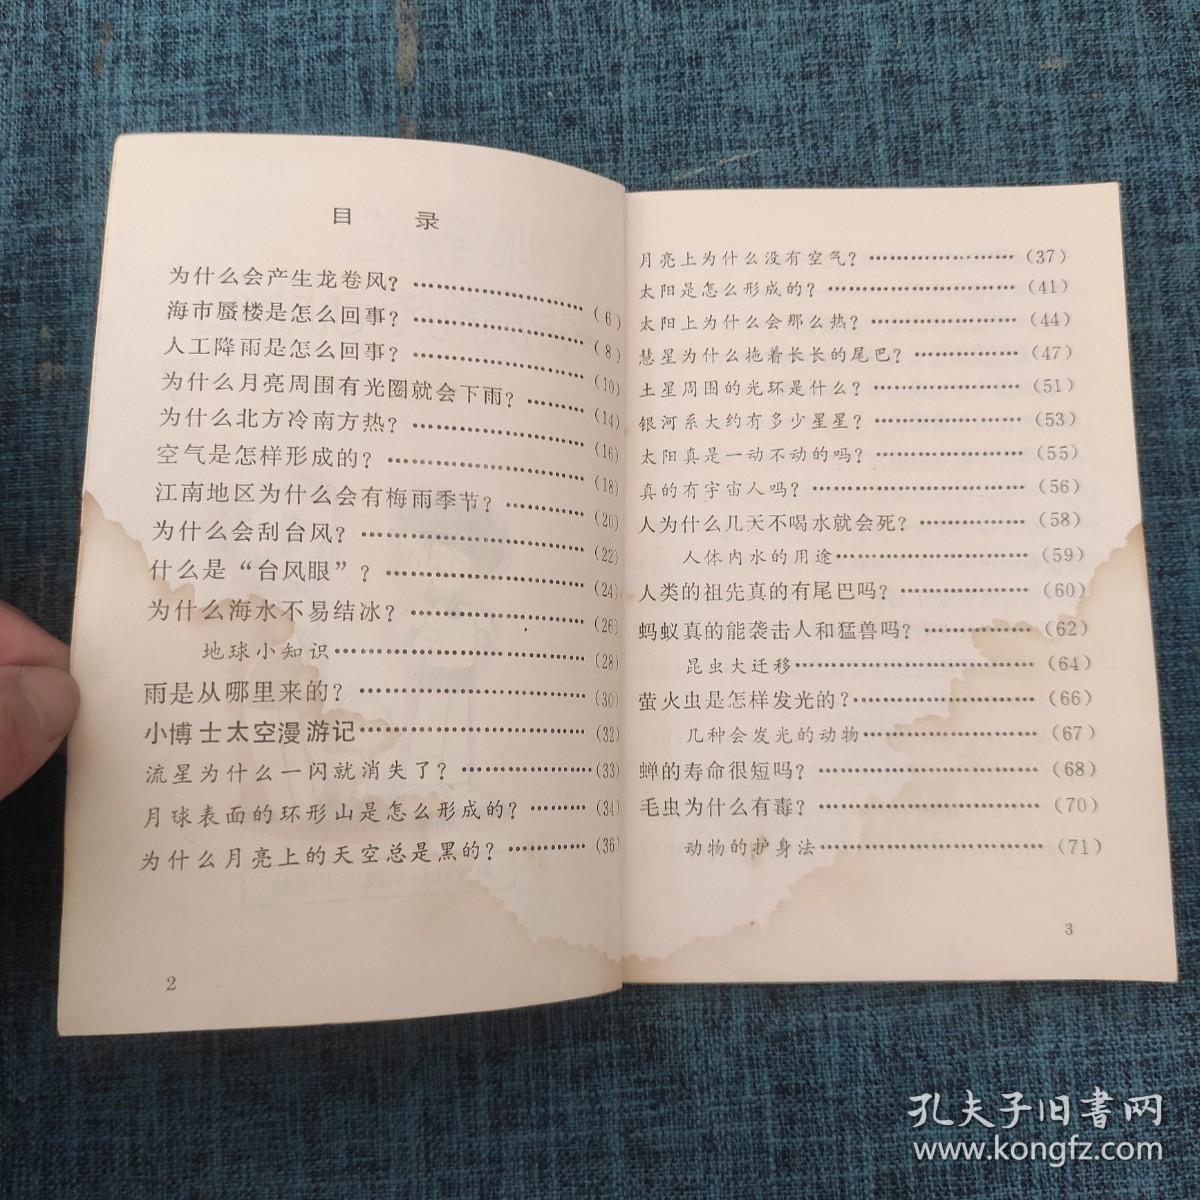 目 录
为什么会产生龙卷风？……………………(6)
海市蜃楼是怎么回事？……………………(8)
人工降雨是怎么回事？……………………(10)
为什么月亮周围有光圈就会下雨？………(14)
为什么北方冷南方热？……………………(16)
空气是怎样形成的？………………………(18)
江南地区为什么会有梅雨季节？…………(20)
为什么会刮台风？…………………………(22)
什么是“台风眼”？…………………………(24)
为什么海水不易结冰？……………………(26)
地球小知识…………………………………(28)
雨是从哪里来的？…………………………(30)
小博士太空漫游记…………………………(32)
流星为什么一闪就消失了？………………(33)
月球表面的环形山是怎么形成的？………(34)
为什么月亮上的天空总是黑的？…………(36)
2
月亮上为什么没有空气？…………………(37)
太阳是怎么形成的？………………………(41)
太阳上为什么会那么热？…………………(44)
慧星为什么拖着长长的尾巴？……………(47)
土星周围的光环是什么？…………………(51)
银河系大约有多少星星？…………………(53)
太阳真是一动不动的吗？…………………(55)
真的有宇宙人吗？…………………………(56)
人为什么几天不喝水就会死？……………(58)
人体内水的用途……………………………(59)
人类的祖先真的有尾巴吗？………………(60)
蚂蚁真的能袭击人和猛兽吗？……………(62)
昆虫大迁移…………………………………(64)
萤火虫是怎样发光的？……………………(66)
几种会发光的动物…………………………(67)
蝉的寿命很短吗？…………………………(68)
毛虫为什么有毒？…………………………(70)
动物的护身法………………………………(71)
3
孔夫子旧書网
www.kongfz.com